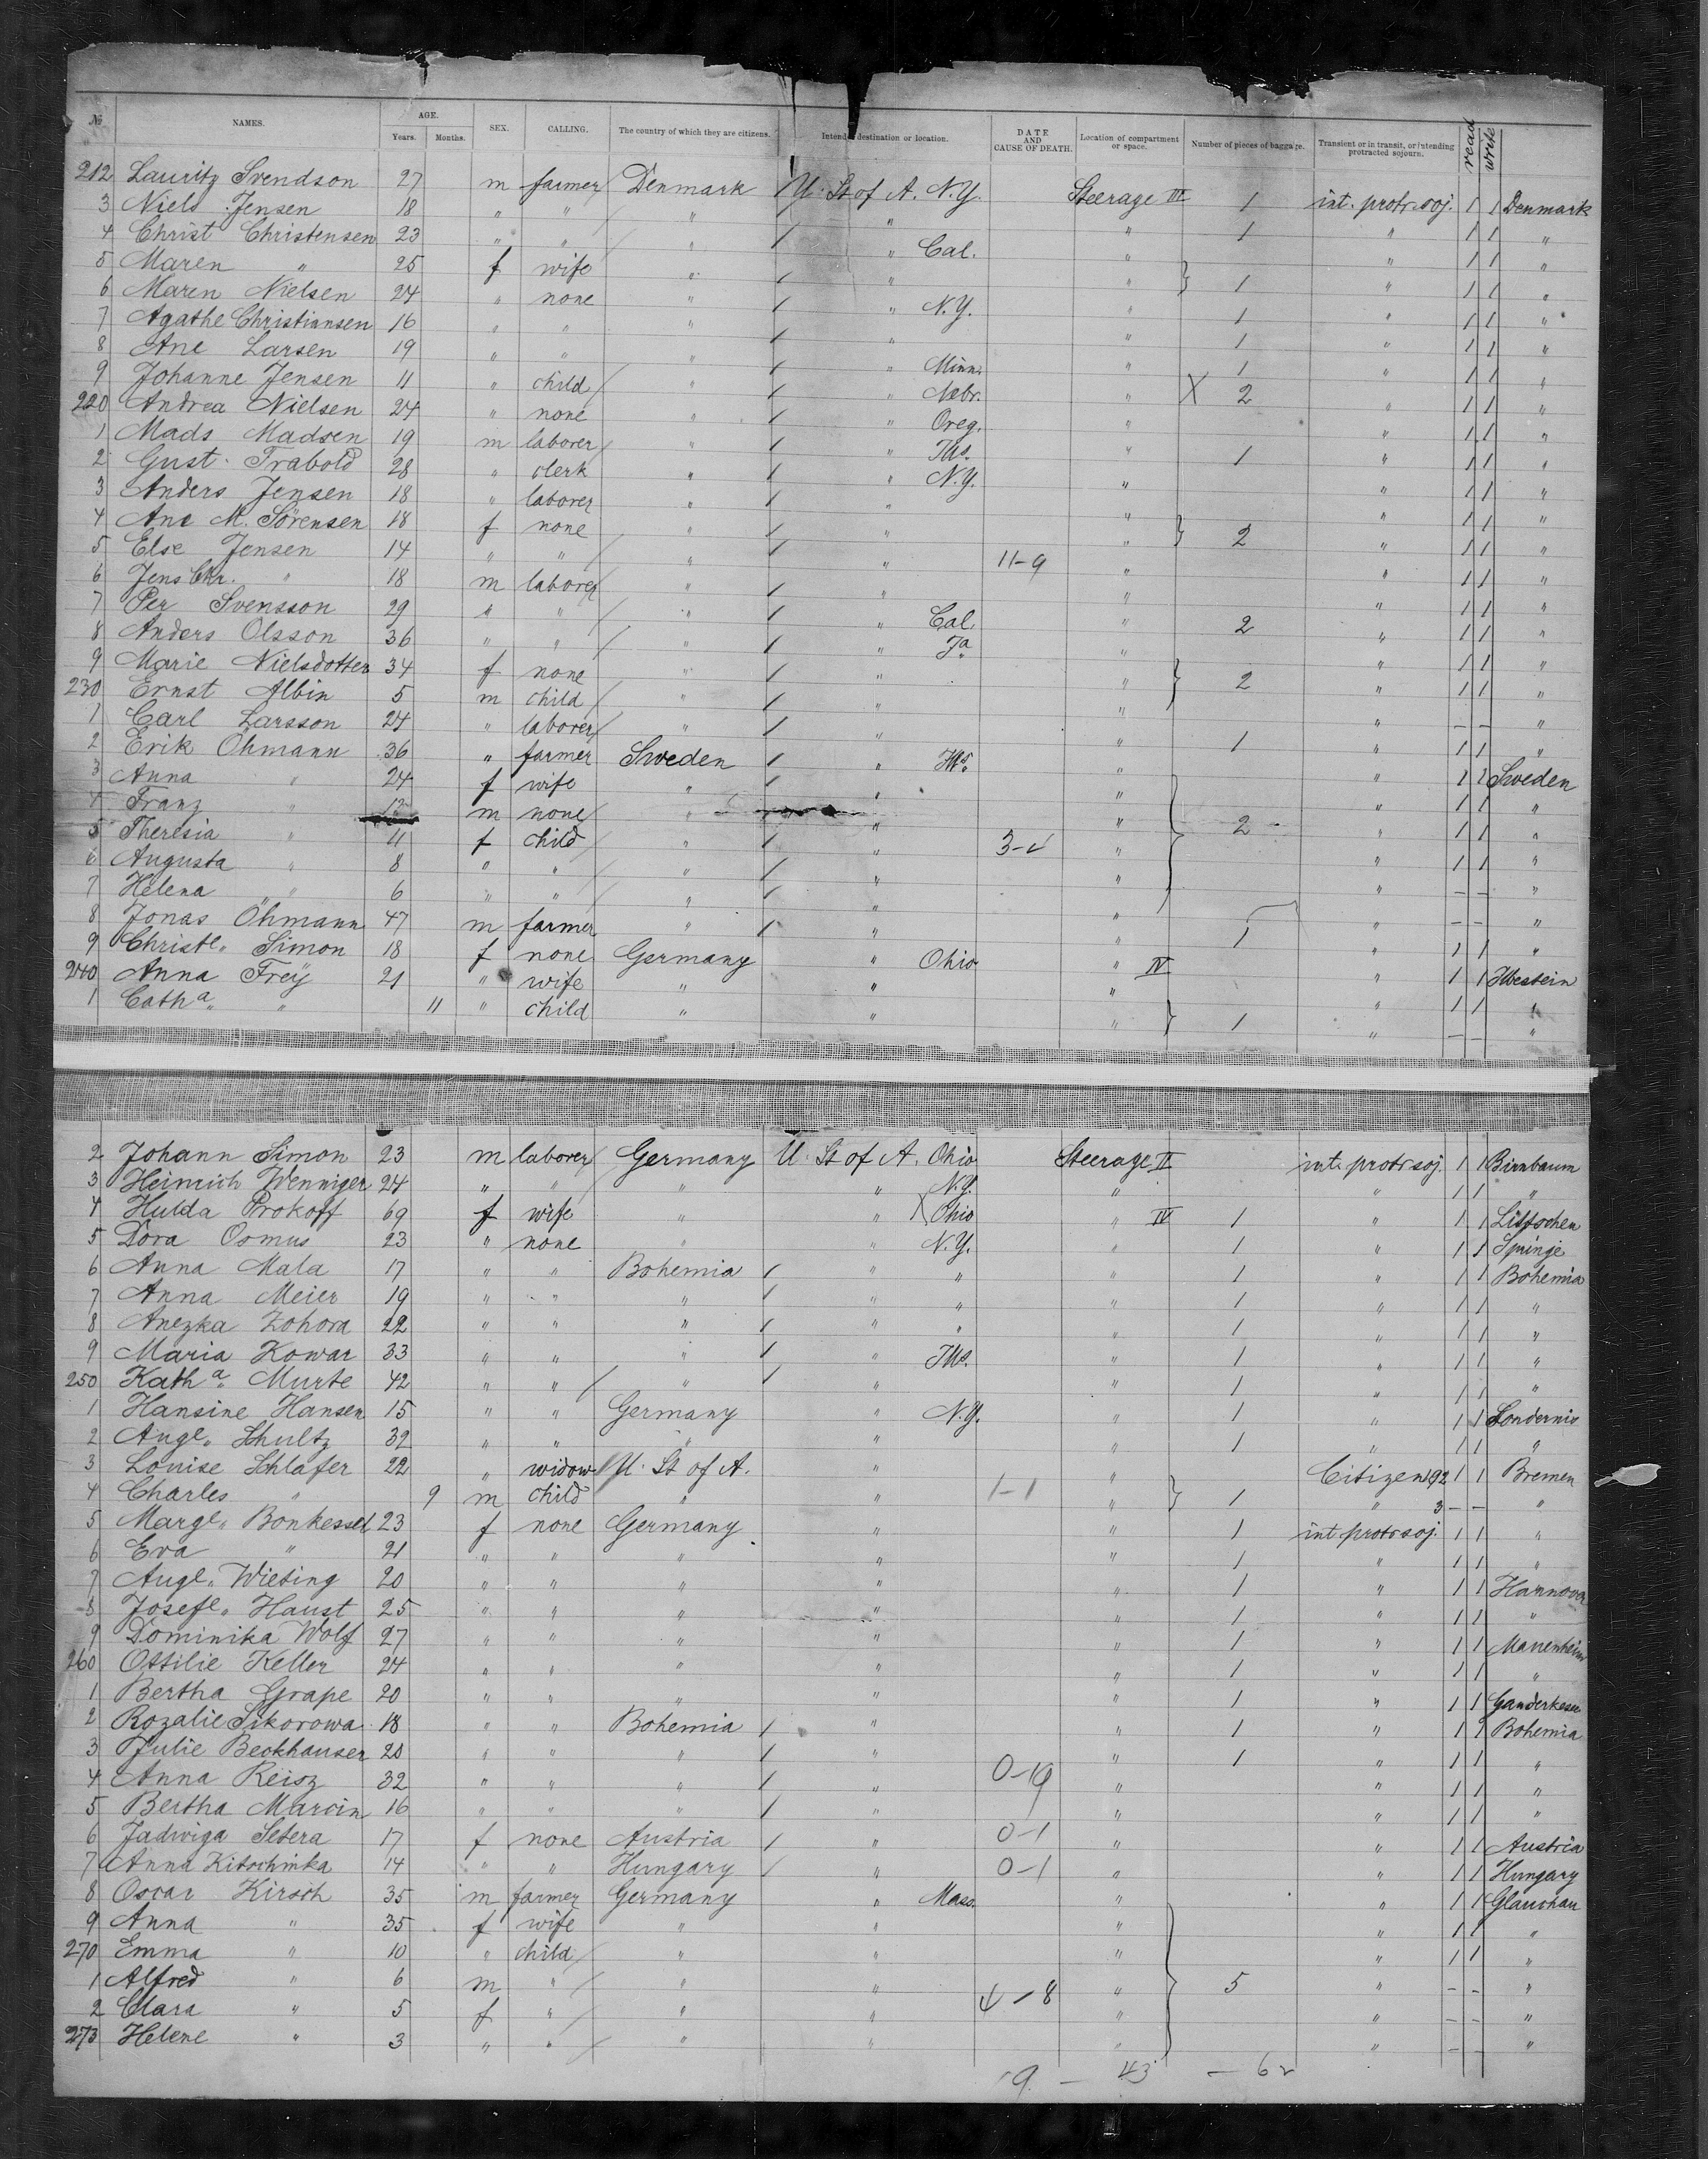 № NAMES. AGE. Years. Months. SEX. CALLING. The country of which they are citizens. Intended destination or location. DATE AND CAUSE OF DEATH. Location of compartment or space. Number of pieces of baggage. Transient or in transit, or intending protracted sojourn. read write
212 Lauritz Svendson 27 m farmer Denmark U. St of A. N.Y. Steerage III 1 int. protr. soj. 1 1 Denmark
3 Niels Jensen 18 " " " " " 1 " 1 1 "
4 Christ Christensen 23 " " " " Cal. " " 1 1 "
5 Maren " 25 f wife " " " 1 " 1 1 "
6 Maren Nielsen 24 " none " " N.Y. " 1 " 1 1 "
7 Agathe Christiansen 16 " " " " " 1 " 1 1 "
8 Ane Larsen 19 " " " " Minn. " 1 " 1 1 "
9 Johanne Jensen 11 " child " " Nebr. " X 2 " 1 1 "
220 Andrea Nielsen 24 " none " " Oreg. " " 1 1 "
1 Mads Madsen 19 m laborer " " Ills. " 1 " 1 1 "
2 Gust. Trabold 28 " clerk " " N.Y. " " 1 1 "
3 Anders Jensen 18 " laborer " " " " 1 1 "
4 Ane M. Sörensen 18 f none " " " 2 " 1 1 "
5 Else Jensen 14 " " " " 11-9 " " 1 1 "
6 Jens Chr. " 18 m laborer " " " " 1 1 "
7 Per Svensson 29 " " " " Cal. " 2 " 1 1 "
8 Anders Olsson 36 " " " " Ia. " " 1 1 "
9 Marie Nielsdotter 34 f none " " " 2 " 1 1 "
230 Ernst Albin 5 m child " " " " - - "
1 Carl Larsson 24 " laborer " " " 1 " 1 1 "
2 Erik Öhmann 36 " farmer Sweden " Ills. " " 1 1 Sweden
3 Anna " 24 f wife " " " " 1 1 "
4 Franz " 12 m none " " " 2 " 1 1 "
5 Theresia " 11 f child " " " " 1 1 "
6 Augusta " 8 " " " " " " - - "
7 Helena " 6 " " " " " " - - "
8 Jonas Öhmann 47 m farmer " " " 1 " 1 1 "
9 Christe. Simon 18 f none Germany " Ohio " IV " 1 1
240 Anna Frey 21 " wife " " " " 1 1 "
1 Catha. " 11 " child " " " 1 " - - "
2 Johann Simon 23 m laborer Germany U. St of A. Ohio Steerage II int. protr soj. 1 1 Birnbaum
3 Heinrich Wenniger 24 " " " " N.Y. " " 1 1 "
4 Hulda Prokoff 69 f wife " " Ohio " IV 1 " 1 1
5 Dora Osmus 23 " none " " N.Y. " 1 " 1 1 Springe
6 Anna Mala 17 " " Bohemia " " " 1 " 1 1 Bohemia
7 Anna Meier 19 " " " " " " 1 " 1 1 "
8 Anezka Zohora 22 " " " " " " 1 " 1 1 "
9 Maria Kowar 33 " " " " Ills. " 1 " 1 1 "
250 Katha. Murte 42 " " " " " 1 " 1 1 "
1 Hansine Hansen 15 " " Germany " N.Y. " 1 " 1 1
2 Auge. Schultz 32 " " " " " 1 " 1 1 "
3 Louise Schlafer 22 " widow U. St of A. " " Citizen 192 1 1 Bremen
4 Charles " 9 m child " " 1-1 " 1 " 3 - - "
5 Marge. Bonkessel 23 f none Germany " " 1 int. protr soj. 1 1 "
6 Eva " 21 " " " " " 1 " 1 1 "
7 Auge. Wieting 20 " " " " " 1 " 1 1 Hannover
8 Josefe. Haust 25 " " " " " 1 " 1 1 "
9 Dominika Wolf 27 " " " " " 1 " 1 1 Mannenheim
260 Ottilie Keller 24 " " " " " 1 " 1 1 "
1 Bertha Grape 20 " " " " " 1 " 1 1 Ganderkesee
2 Rozalie Sikorowa 18 " " Bohemia " " 1 " 1 1 Bohemia
3 Julie Beckhauser 20 " " " " " 1 " 1 1 "
4 Anna Reisz 32 " " " " 0-19 " " 1 1 "
5 Bertha Marcin 16 " " " " " " 1 1 "
6 Jadwiga Setera 17 f none Austria " 0-1 " " 1 1 Austria
7 Anna Kitschinka 14 " " Hungary " 0-1 " " 1 1 Hungary
8 Oscar Kirsch 35 m farmer Germany " Mass. " " 1 1 Glauchau
9 Anna " 35 f wife " " " " 1 1 "
270 Emma " 10 " child " " " " 1 1 "
1 Alfred " 6 m " " " " 5 " - - "
2 Clara " 5 f " " " 4-8 " " - - "
273 Helene " 3 " " " " " " - - "
9 - 43 - 62